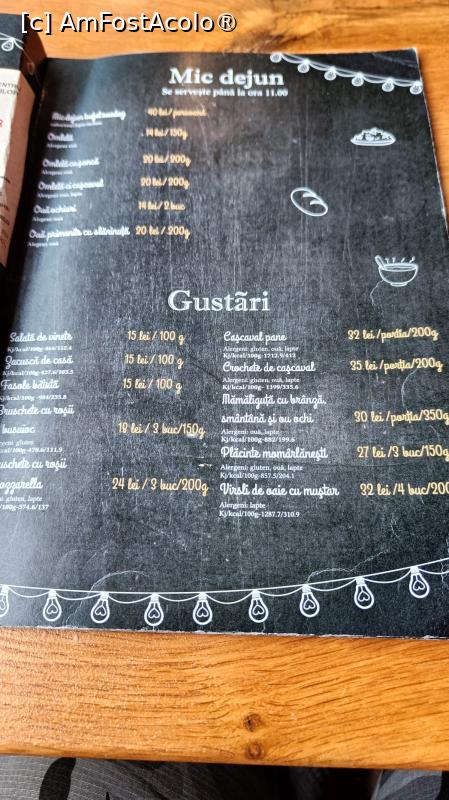 [c] AmFostAcolo®
Mic dejun
Se servește până la ora 11.00
Mic dejun bufet suedeg 40 lei/persoană
Omletă 14 lei/150g
Alergeni: ouă
Omletă cu șuncă 20 lei/200g
Alergeni: ouă
Omletă cu cașcaval 20 lei/200g
Alergeni: ouă, lapte
Ouă ochiuri 14 lei/2 buc
Alergeni: ouă
Ouă țărănești cu slăninuță 20 lei/200g
Alergeni: ouă
Gustări
Salată de vinete 15 lei/ 100 g
Zacuscă de casă 15 lei/ 100 g
Kj/kcal/100g-427.6/103.5
Fasole bătută 15 lei/ 100 g
Kj/kcal/100g -984/235.8
Bruschete cu roșii
busuioc 18 lei / 3 buc/150g
geni: gluten
/kcal/100g-470.6/111.9
uschete cu roșii
ozzarella 24 lei / 3 buc/200g
ni: gluten, lapte
/100g-574.6/137
Cașcaval pane 32 lei /porția/200g
Alergeni: gluten, ouă, lapte
Kj/kcal/100g-1712.9/412
Crochete de cașcaval 35 lei /porția/200g
Alergeni: gluten, ouă, lapte
Kj/kcal/100g- 1399/335.6
Mămăliguță cu brânză,
smântână și ou ochi 30 lei /porția/350g
Alergeni: ouă, lapte
Kj/kcal/100g-882/199.6
Plăcinte momârlănești 27 lei /3 buc/150g
Alergeni: gluten, lapte
Kj/kcal/100g-857.5/204.1
Virsli de oaie cu muștar 32 lei /4 buc/200
Alergeni: lapte
Kj/kcal/100g-1287.7/310.9